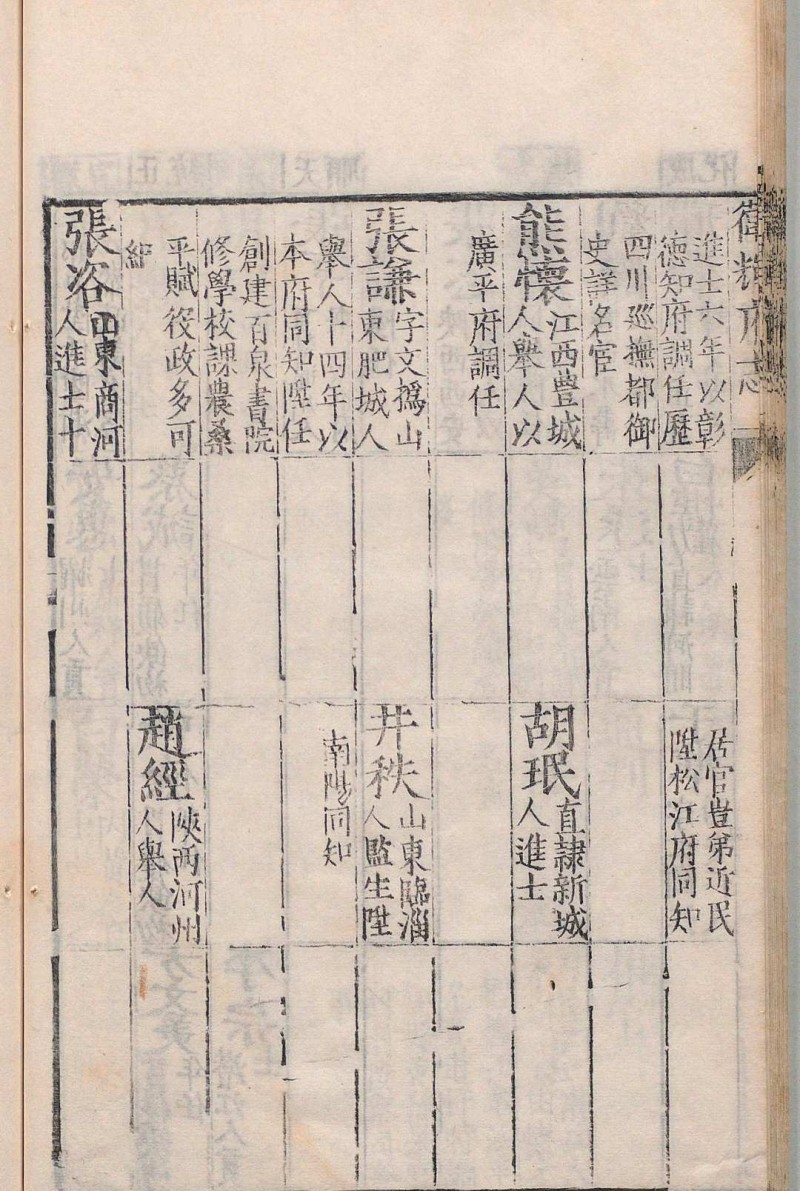 衛輝府志
進士六年以彰
德知府調任歷
四川巡撫都御
史詳名宦
熊懷
江西豊城
人舉人以
廣平府調任
張謙
字文撝山
東肥城人
舉人十四年以
本府同知陞任
創建百泉書院
修學校課農桑
平賦役政多可
紀
張洛
山東商河
人進士十
居官豈弟近民
陞松江府同知
胡珉
直隷新城
人進士
井秩
山東臨淄
人監生陞
南陽同知
趙經
陝西河州
人舉人